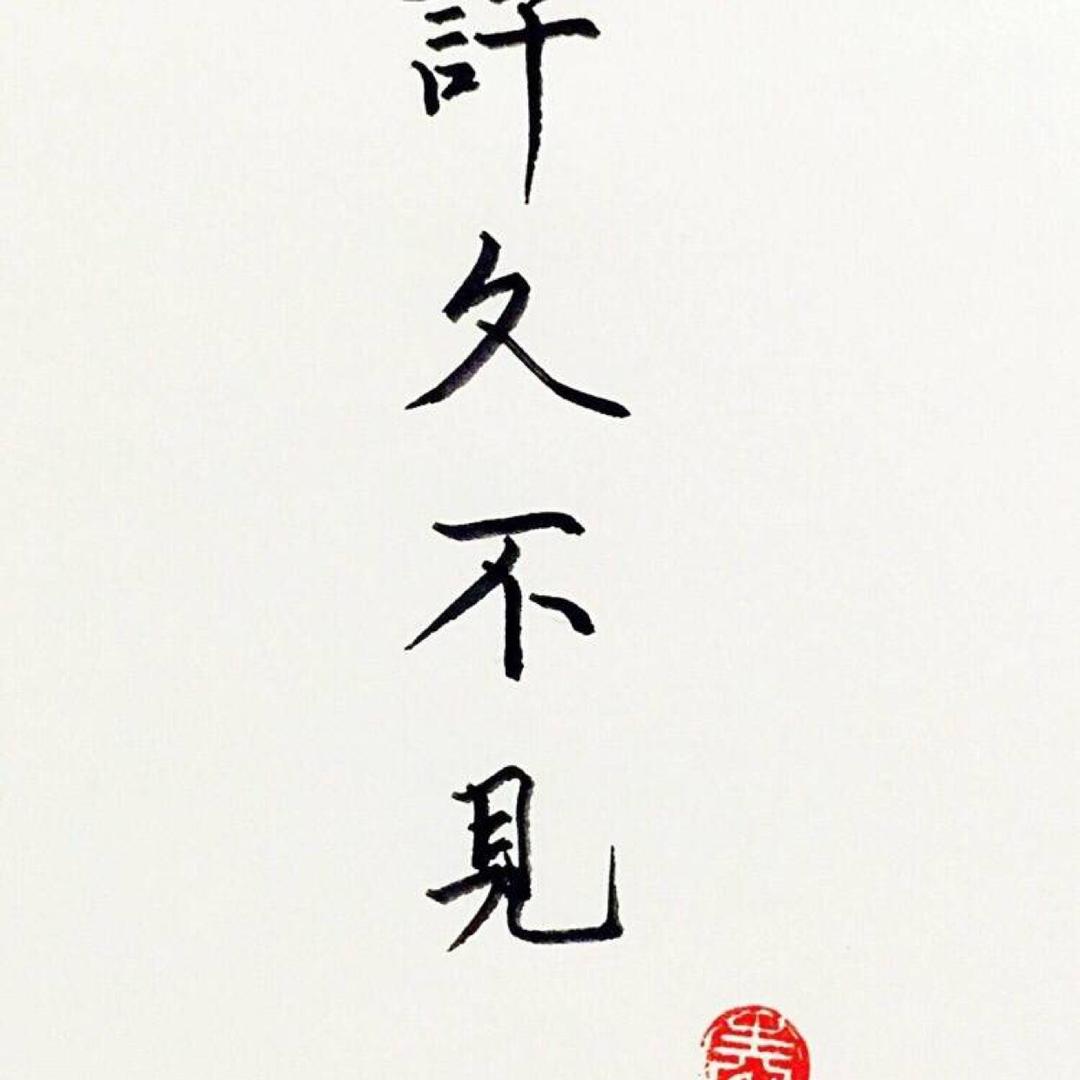 許久不見